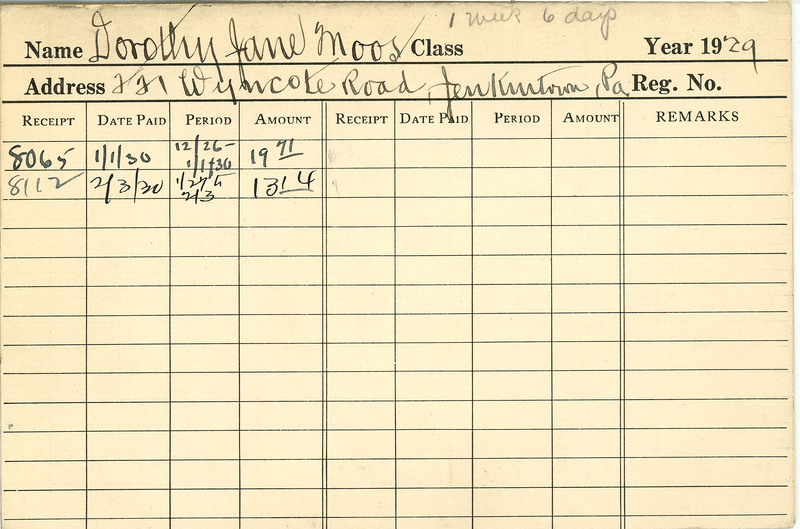 1 week 6 days
Name Dorothy Jane Moos Class Year 1929
Address 221 Wyncote Road, Jenkintown, Pa. Reg. No.
RECEIPT DATE PAID PERIOD AMOUNT RECEIPT DATE PAID PERIOD AMOUNT REMARKS
8065 1/1/30 12/26- 1/1/30 19 71
8112 2/3/30 1/27 to 2/3 13 14